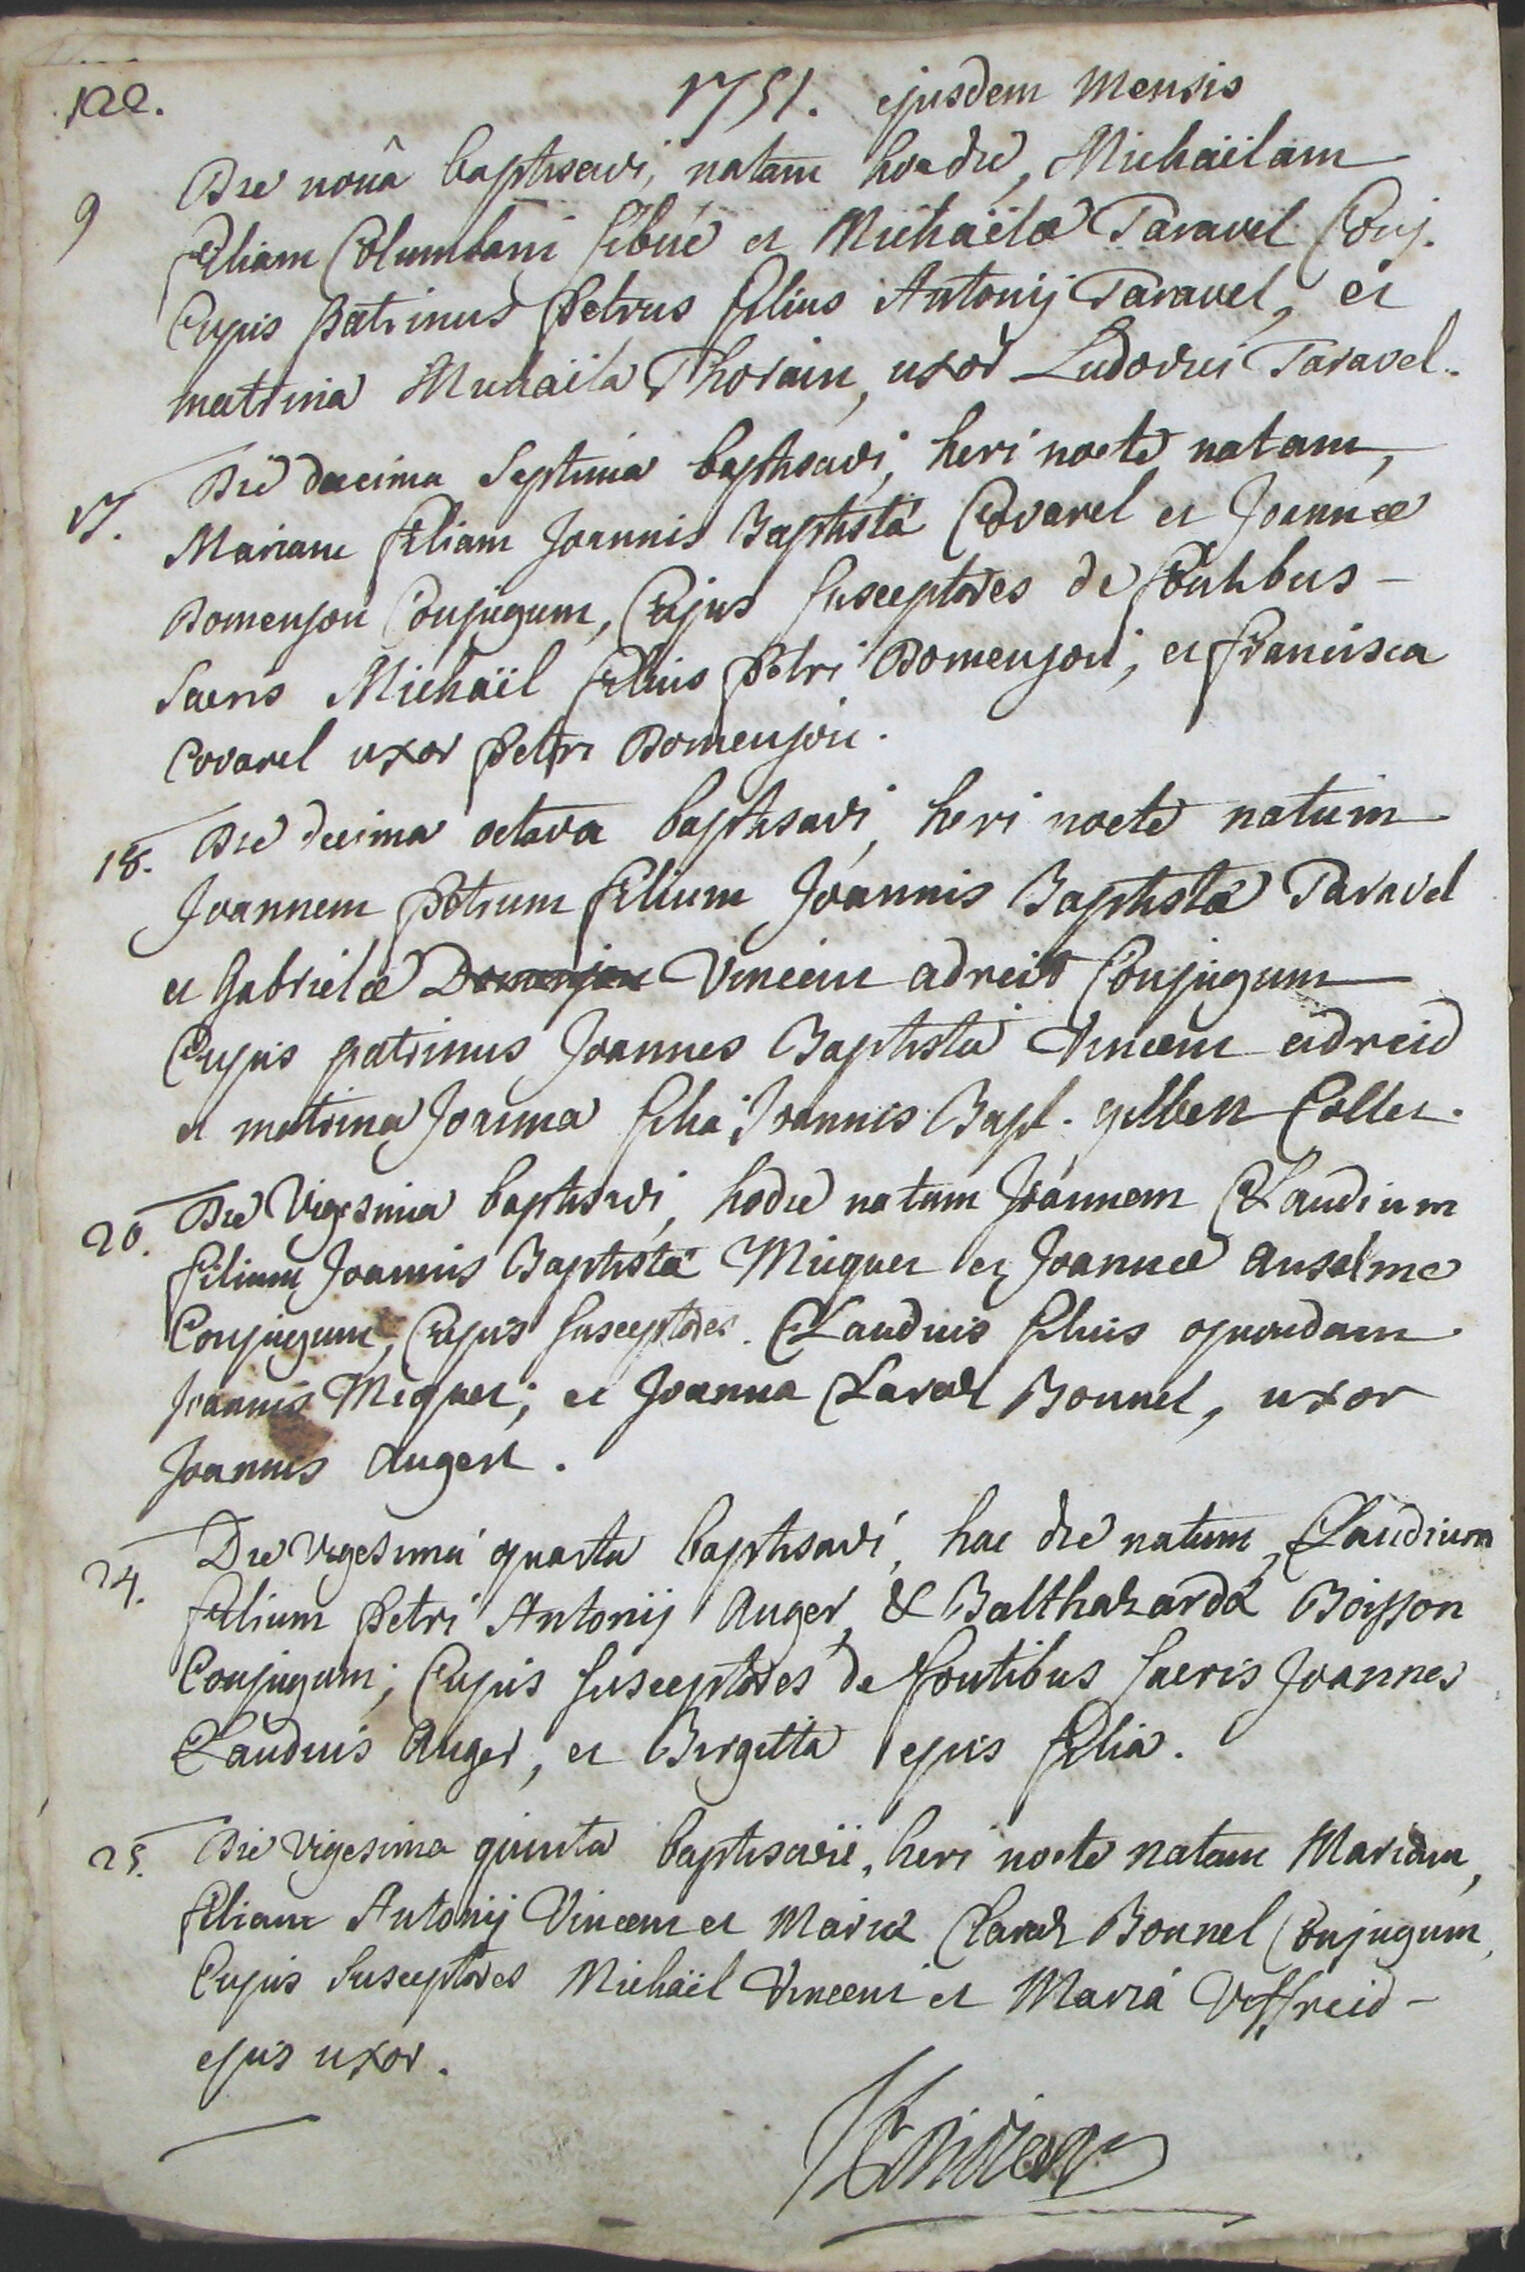 122. 1751. ejusdem Mensis
9 Die nonâ baptisavi, natam hoadie, Michaëlam
filiam Columbani et Michaëlæ Taravel Conj.
Cujus Patrinus Petrus filius Antonij Taravel, et
matrina Michaëla Thorain, uxor Ludovici Taravel.
17. Die decima Septima baptisavi, heri nocte natam,
Mariam filiam Joannis Baptistæ Covarel et Joannæ
Domenjon Conjugum, Cujus Susceptores de fontibus -
Sacris Michaël filius Petri Domenjon, et francisca
Covarel uxor Petri Domenjon.
18. Die decima octava baptisavi, heri nocte natum
Joannem Petrum filium Joannis Baptistæ Taravel
et Gabrielæ Domenjon Vincent adreit Conjugum
Cujus patrinus Joannes Baptista Vincent adreid
et matrina Joanna filia Joannis Bapt. gilbert Collet.
20. Die Vigesima baptisavi, hodie natum Joannem Claudium
filium Joannis Baptistæ Miquet et Joannæ anselme
Conjugum, Cujus Susceptores. Claudius filius quondam
Joannis Miquet; et Joanna Claraz Bonnel, uxor
Joannis Augert.
24. Die vigesimâ quarta baptisavi, hac die natum, Claudium
filium Petri Antonij Auger, & Balthazardæ Boisson
Conjugum; Cujus Susceptores de fontibus Sacris Joannes
Claudius Auger, et Birgitta ejus filia.
25. Die Vigesima quinta baptisavi, heri nocte natam Mariam,
filiam Antonij Vincent et Mariæ Claraz Bonnel Conjugum,
Cujus Susceptores Michaël Vincent et Maria Voffreid -
ejus uxor.